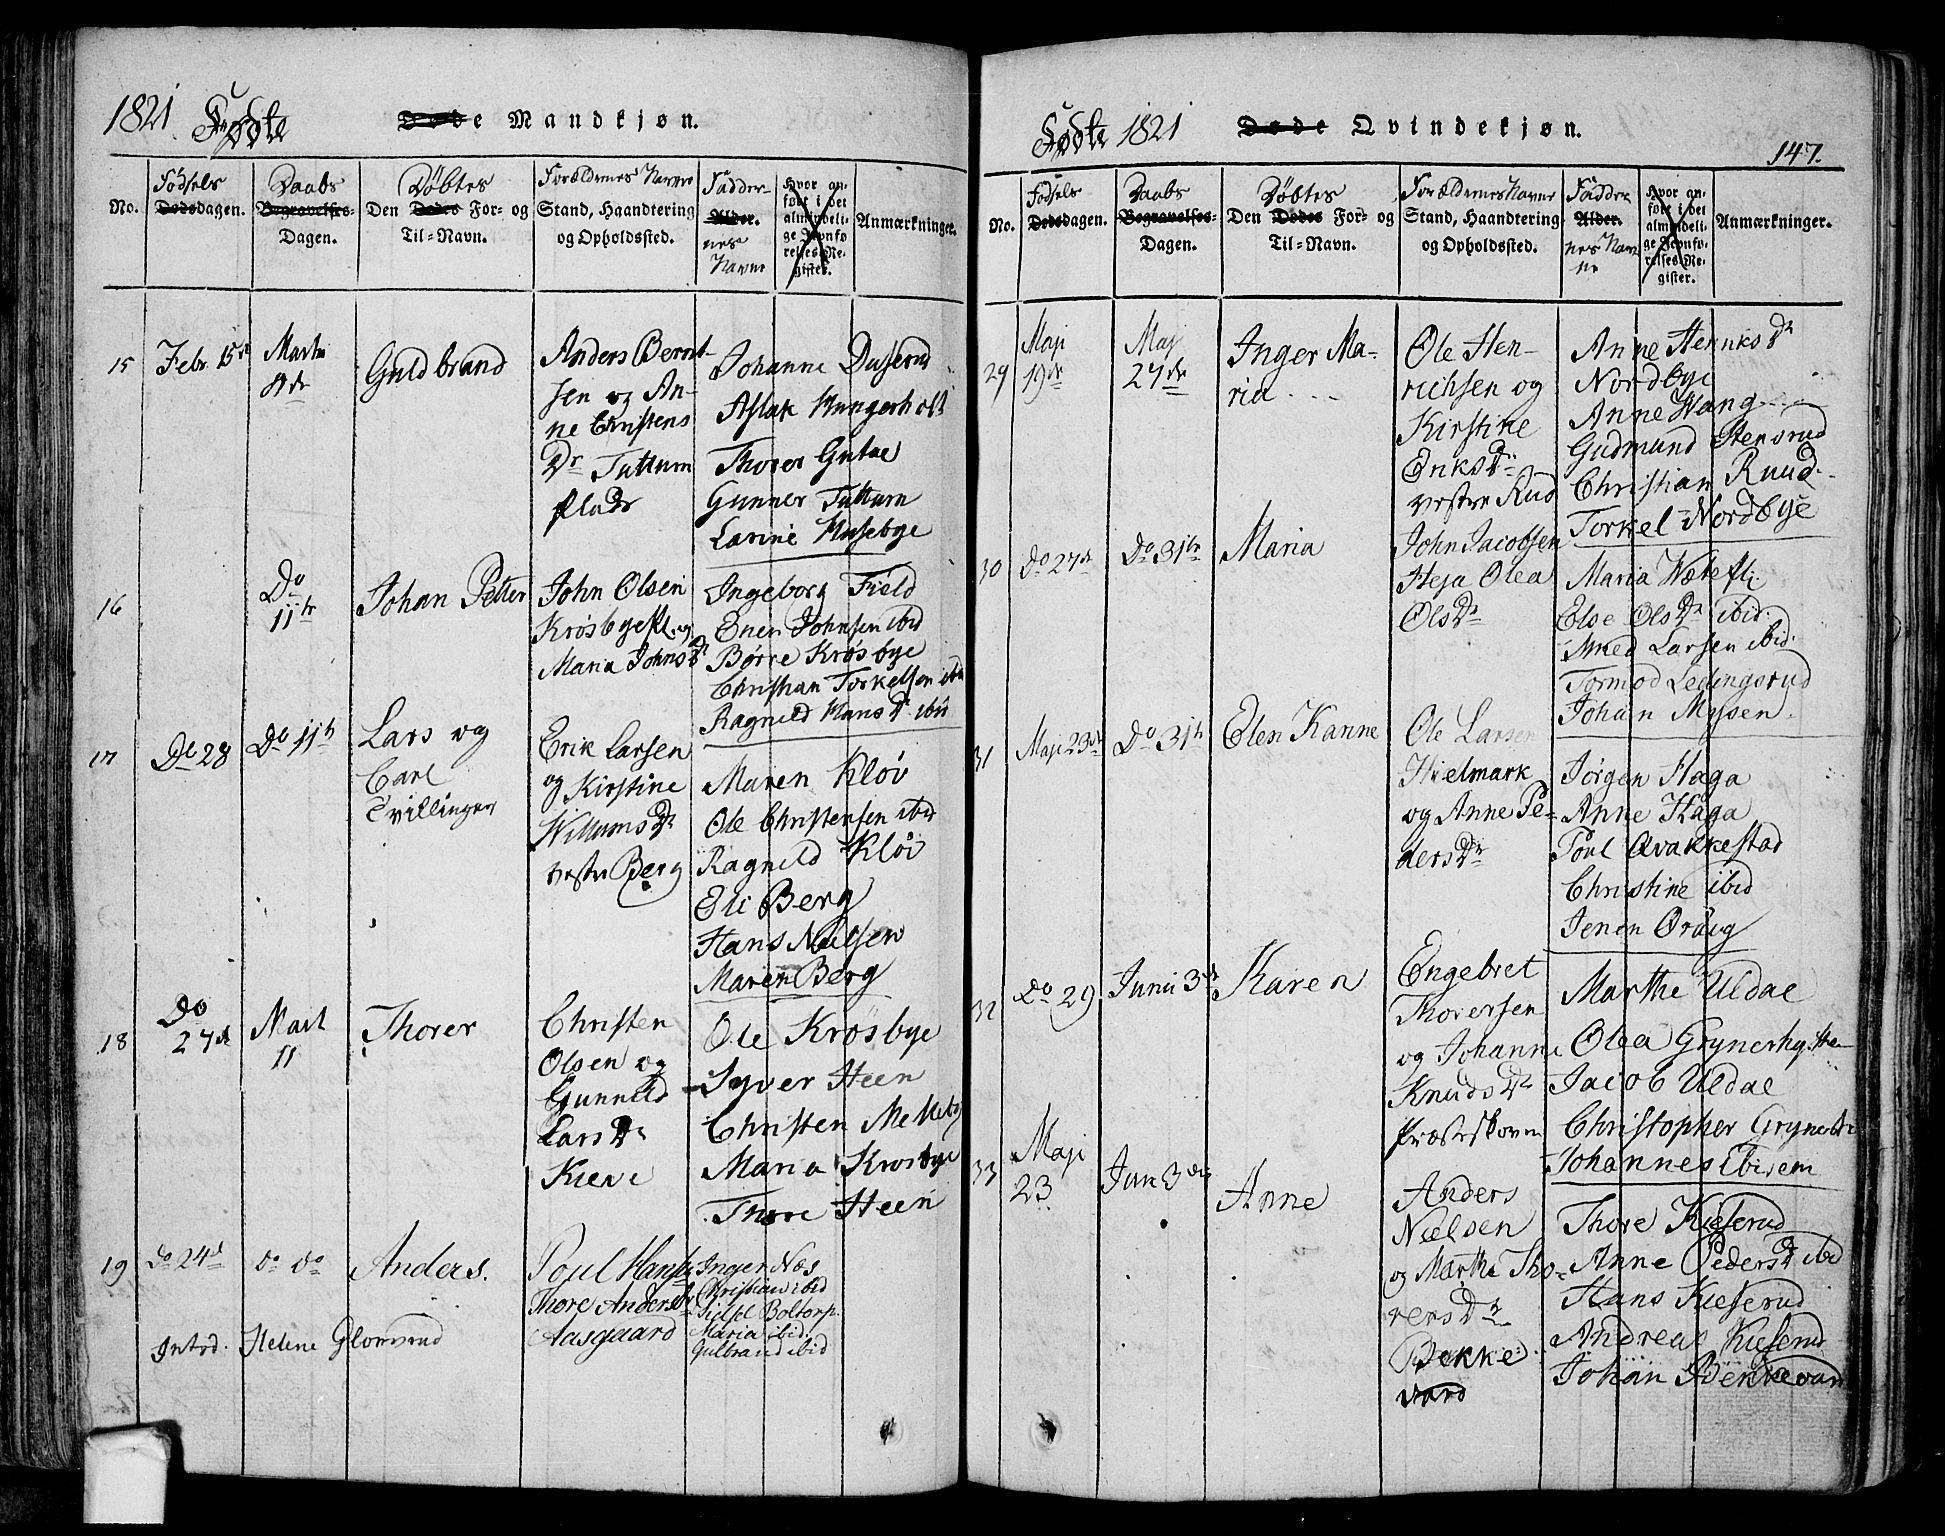 1821 Fødte Døde Mandkjøn.
No.
Fødsels
Dødsdagen.
Daabs
Begravelses-
Dagen.
Døbtes
Den Dødes For- og
Til-Navn.
Forældrenes Navne
Stand, Haandtering
og Opholdssted.
Fadder-
Alder.
nes
Navne
Hvor an-
ført i det
almindeli-
ge Jevnfø-
relses-Re-
gister.
Anmærkninger.
15
Febr. 15de
Marts
4de
Guldbrand
Anders Bernt-
sen og An-
ne Christens
Dr Tuttum
plads
Johanne Duserud
Aslak Mungerholt
Thorer Gutae
Gunner Tuttum
Larine Mysebye
16
Do
11te
Johan Petter
John Olsen
Krosbyepl. og
Maria Johns Dr
Ingeborg Field
Enen Johnsen ibid
Børre Krosbye
Christian Torkelsen ibid
Ragnild Hans Dr ibid
17
Do 28
Do 11te
Lars og
Carl
Tvillinger
Erik Larsen
og Kirstine
Willums Dr
vestre Berg
Maren Kløv
Ole Christensen ibid
Ragnild Kløv
Eli Berg
Hans Nielsen
Maren Berg
18
Do
27de
Mart
11
Thorer
Christen
Olsen og
Gunnild
Lars Dr
Kiene
Ole Krosbye
Syver Heen
Christen Melleby
Maria Krosbye
Thore Heen
19
do 24d
do do
Anders.
Poul Hansen
Thore Anders Dr
Aasgaard
Inger Næs
Christian ibid
Sidsel Boltorp.
Maria ibid.
Gulbrand ibid
Introd. Helene Glomsrud
Fødte 1821 Døde Qvindekjøn.
147.
No.
Fødsels
Dødsdagen.
Daabs
Begravelses-
Dagen.
Døbtes
Den Dødes For- og
Til-Navn.
Forældrenes Navne
Stand, Haandtering
og Opholdssted.
Faddre
Alder.
nes Nav
ne
Hvor an-
ført i det
almindeli-
ge Jevnfø-
relses Re-
gister.
Anmærkninger.
29
Maji
19de
Maj
27de
Inger Ma-
ria
Ole Hen-
richsen og
Kirstine
Eriks Dr
vestre Rud
Anne Henriks Dr
Nordbye
Anne Hang
Gudmund Stensrud
Christian Ruud
Torkel Nordbye
30
Do 27de
Do 31te
Maria
John Jacobsen
Heja Olea
Ols Dr
Maria Wetefli
Else Ols Dr ibid.
Amed Larsen ibid.
Tormod Ledingsrud
Johan Mysen.
31
Maji 23de
Do 31te
Elen Kanne
Ole Larsen
Hielmark
og Anne Pe-
ders Dr
Jørgen Haga
Anne Haga
Poul Qvakkestad
Christine ibid
Jenen Øraug
32
Do 29
Junii 3de
Karen
Engebret
Thorersen
og Johanne
Knuds Dr
Præsteskoven
Marthe Uldal
Olea Grynerhysten
Jacob Uldal
Christopher
Johannes Ibidem
33
Maji
23
Jun 3die
Anne
Anders
Nielsen
og Marthe Tho-
rers Dr
Bekke
vard
Thore Kieserud
Anne Peders Dr ibid
Hans Kieserud
Andreas Kieserud
Johan Bekkevar